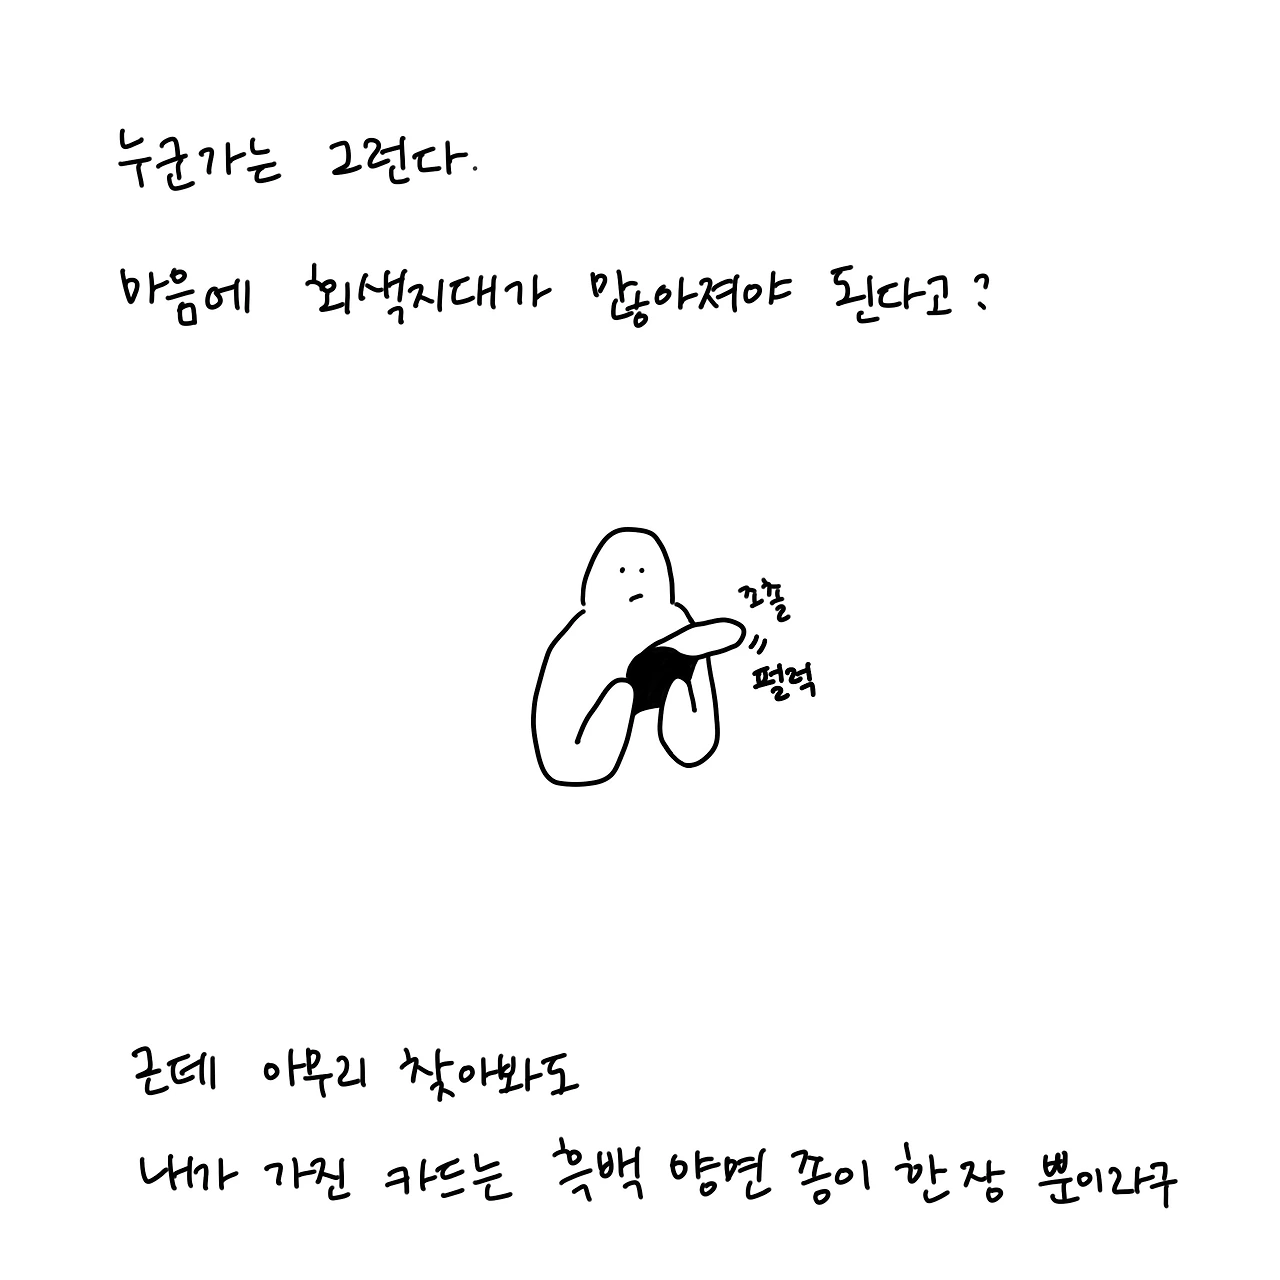 누군가는 그런다.
마음에 회색지대가 많아져야 된다고?
쪼촐
펄럭
근데 아무리 찾아봐도
내가 가진 카드는 흑백 양면 종이 한 장 뿐이라구